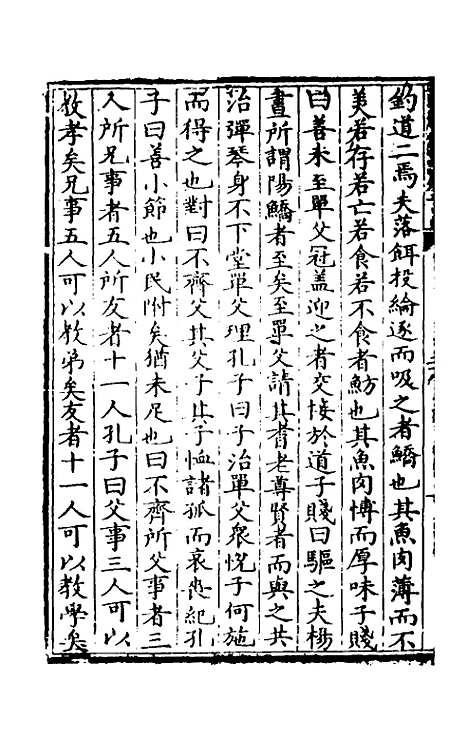 釣道二焉夫落餌投綸逐而吸之者鱎也其魚肉薄而不
美若存若亡若食若不食者魴也其魚肉博而厚味子賤
曰善未至單父冠盖迎之者交接於道子賤曰驅之夫楊
晝所謂陽鱎者至矣至單父請其耆老尊賢者而與之共
治彈琴身不下堂單父理孔子曰子治單父衆悅子何施
而得之也對曰不齊父其父子其子恤諸孤而哀喪紀孔
子曰善小節也小民附矣猶未足也曰不齊所父事者三
人所兄事者五人所友者十一人孔子曰父事三人可以
教孝矣兄事五人可以教弟矣友者十一人可以教學矣